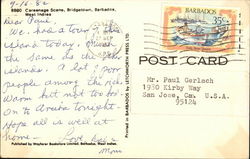 9-16-82
6980 Careenage Scene, Bridgetown, Barbados, West Indies
Dear Paul,
We had a tour of the
island today. Much
the same as the other
islands. A lot of poor
people among the rich.
Warm but not too hot.
On to Aruba tonight.
Hope all is well at
home.
Love,
Mom
Published by Wayfarer Bookstore Limited, Barbados, West Indies
Printed in BARBADOS by LETCHWORTH PRESS LTD
BARBADOS
35c
POST CARD
Mr. Paul Gerlach
1930 Kirby Way
San Jose, Ca. U.S.A.
95124